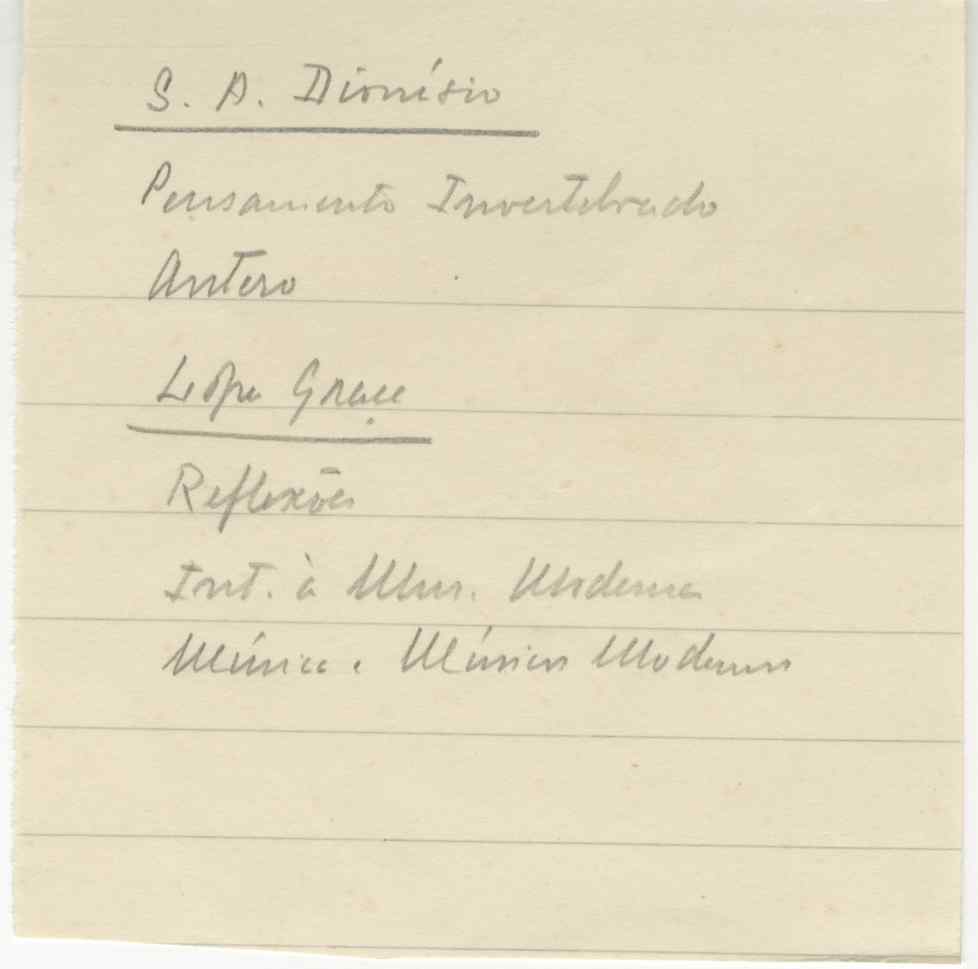 S. A. Dionísio
Pensamento Invertebrado
Antero
Lopes Graça
Reflexões
Int. à Mus. Moderna
Música e Músicos Modernos